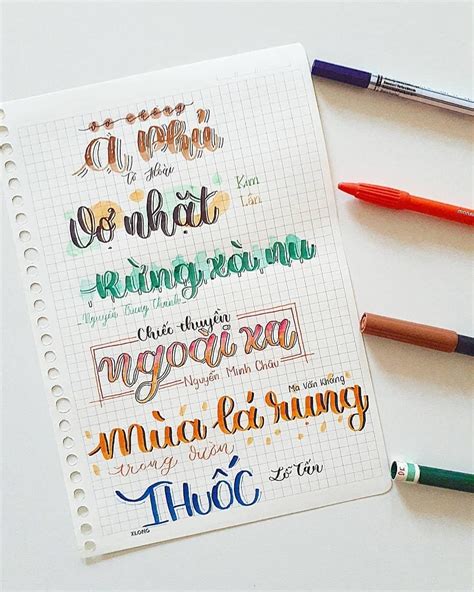 Vợ chồng
A Phủ
Tô Hoài
Vợ nhặt
Kim
Lân
Rừng xà nu
Nguyễn Trung Thành
Chiếc thuyền
ngoài xa
Nguyễn Minh Châu
Ma Văn Kháng
Mùa lá rụng
trong vườn
THUỐC
Lỗ Tấn
XLONG